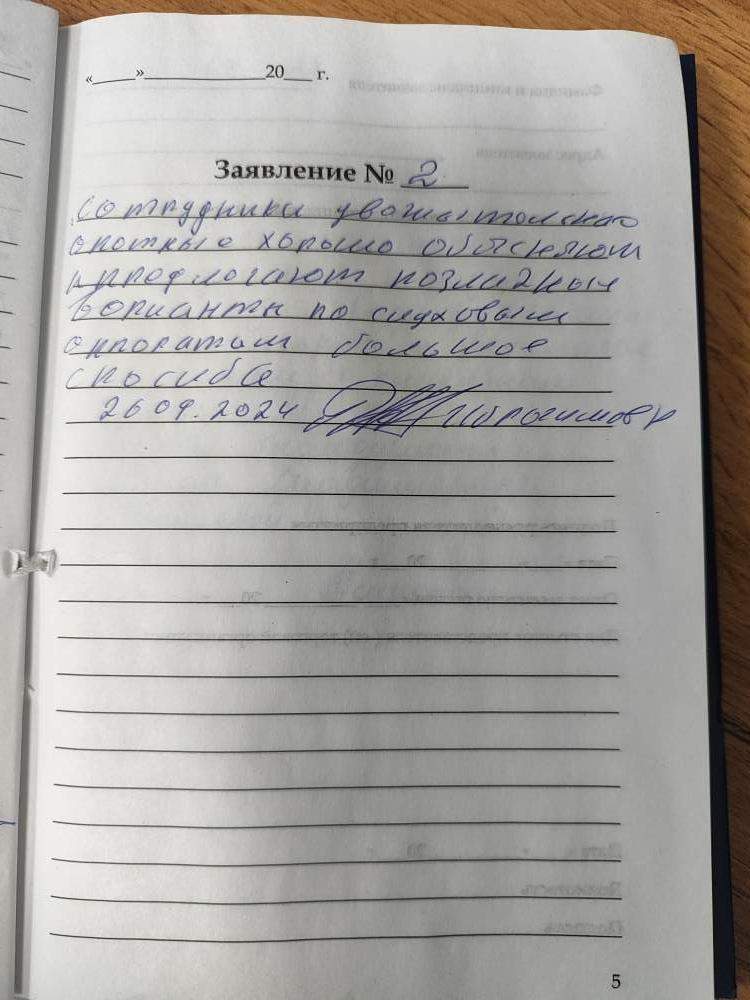 «____»____________20___ г.
Заявление № 2
сотрудники уважытольноо
опотные хорошо объяснеют
и предлогают розличные
ворианты по слуховым
оппоратам большое
спосиба
26 09. 2024
5